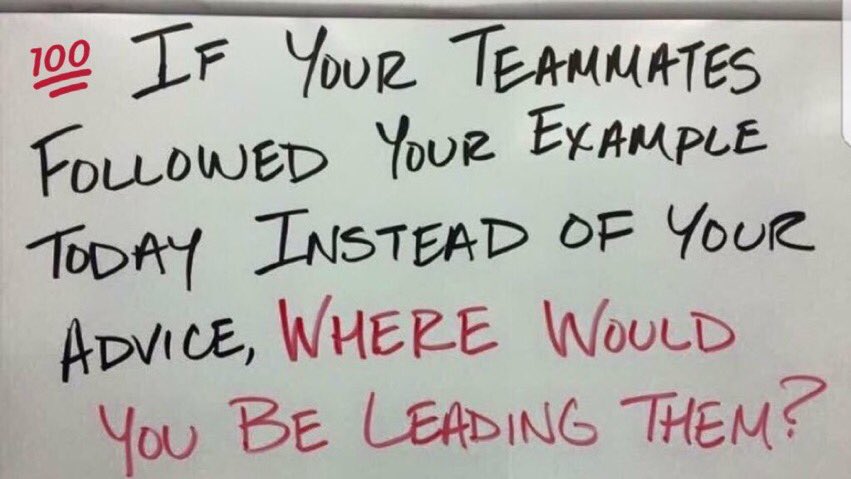 💯 If Your Teammates
Followed Your Example
Today Instead of Your
Advice, Where Would
You Be Leading Them?